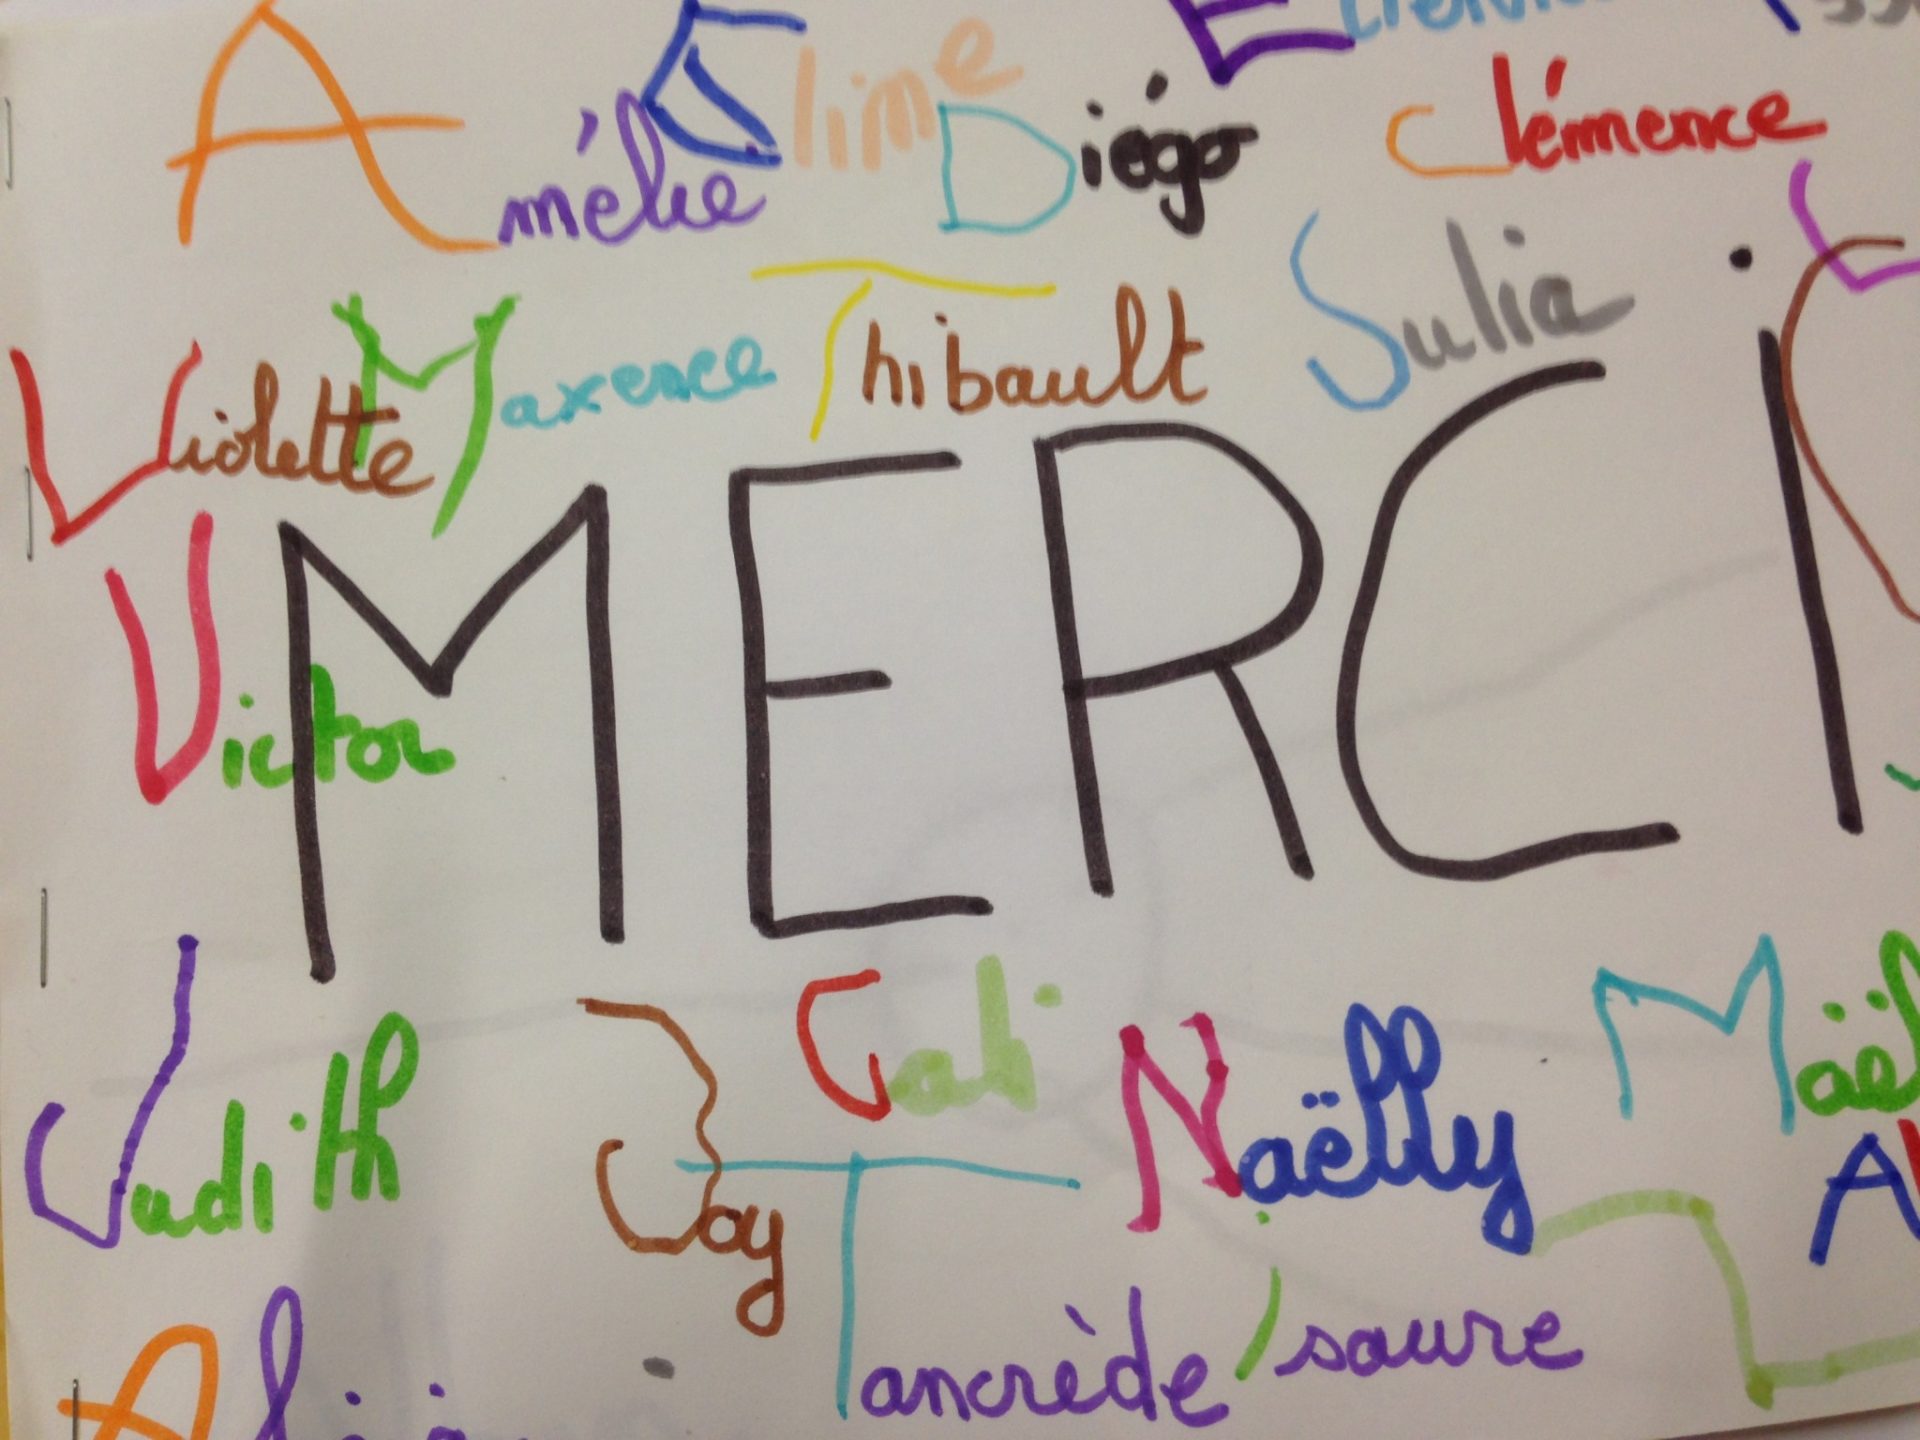 Amélie Eline Diégo Clémence
Violette Maxence Thibault Julia
Victor
MERCI
Judith Joy Cali Naëlly
Tancrède Isaure